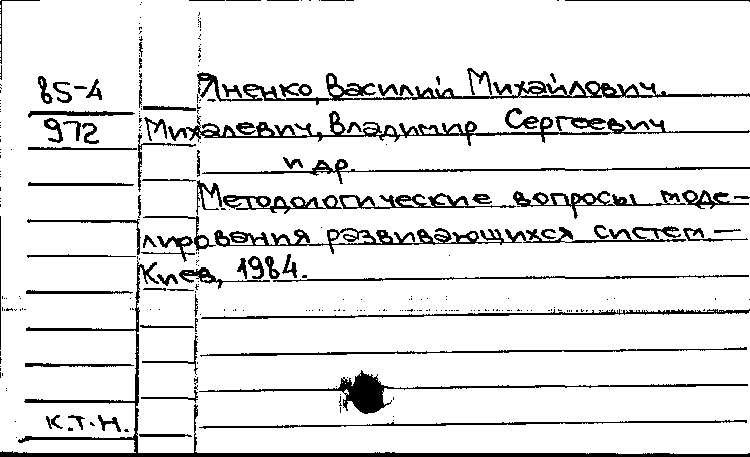 85-4
972
Яненко, Василий Михайлович.
Михалевич, Владимир Сергеевич
и др.
Методологические вопросы моде-
лирования развивающихся систем —
Киев, 1984.
к.т.н.